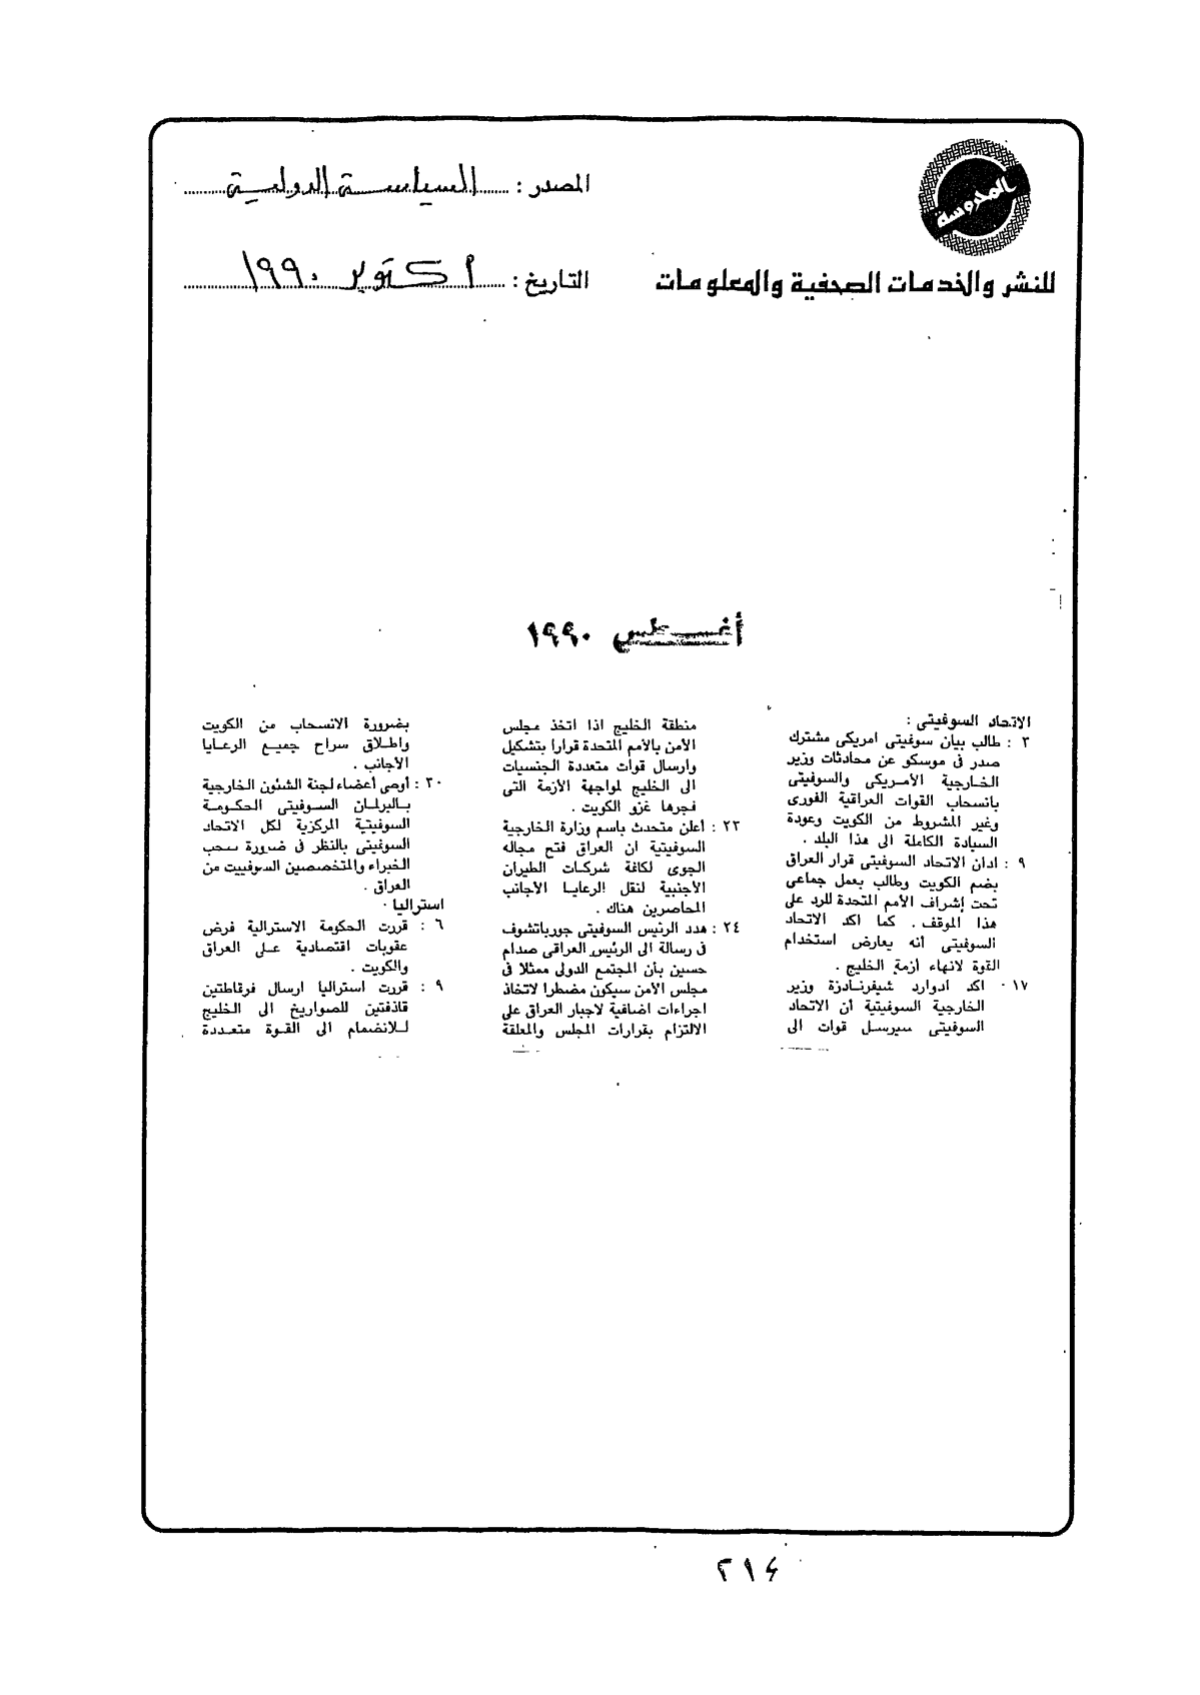 المحروسة
للنشر والخدمات الصحفية والمعلومات
المصدر : السياسة الدولية
التاريخ : اكتوبر ١٩٩٠
أغسطس ١٩٩٠
الاتحاد السوفيتى :
٣ : طالب بيان سوفيتى امريكى مشترك
صدر فى موسكو عن محادثات وزير
الخارجية الأمريكى والسوفيتى
بانسحاب القوات العراقية الفورى
وغير المشروط من الكويت وعودة
السيادة الكاملة الى هذا البلد .
٩ : ادان الاتحاد السوفيتى قرار العراق
بضم الكويت وطالب بعمل جماعى
تحت إشراف الأمم المتحدة للرد على
هذا الموقف . كما اكد الاتحاد
السوفيتى انه يعارض استخدام
القوة لانهاء أزمة الخليج .
١٧ : اكد ادوارد شيفرنادزة وزير
الخارجية السوفيتية أن الاتحاد
السوفيتى سيرسل قوات الى
منطقة الخليج اذا اتخذ مجلس
الأمن بالأمم المتحدة قرارا بتشكيل
وارسال قوات متعددة الجنسيات
الى الخليج لمواجهة الأزمة التى
فجرها غزو الكويت .
٢٣ : أعلن متحدث باسم وزارة الخارجية
السوفيتية ان العراق فتح مجاله
الجوى لكافة شركات الطيران
الأجنبية لنقل الرعايا الأجانب
المحاصرين هناك .
٢٤ : هدد الرئيس السوفيتى جورباتشوف
فى رسالة الى الرئيس العراقى صدام
حسين بأن المجتمع الدولى ممثلا فى
مجلس الأمن سيكون مضطرا لاتخاذ
اجراءات اضافية لاجبار العراق على
الالتزام بقرارات المجلس والمعلقة
بضرورة الانسحاب من الكويت
واطلاق سراح جميع الرعايا
الأجانب .
٣٠ : أوصى أعضاء لجنة الشئون الخارجية
بالبرلمان السوفيتى الحكومة
السوفيتية المركزية لكل الاتحاد
السوفيتى بالنظر فى ضرورة سحب
الخبراء والمتخصصين السوفييت من
العراق .
استراليا :
٦ : قررت الحكومة الاسترالية فرض
عقوبات اقتصادية على العراق
والكويت .
٩ : قررت استراليا ارسال فرقاطتين
قاذفتين للصواريخ الى الخليج
للانضمام الى القوة متعددة
٢١٤